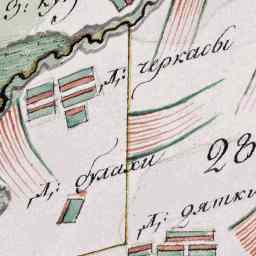 д: черкасы
д: булахи
28
д: дятки